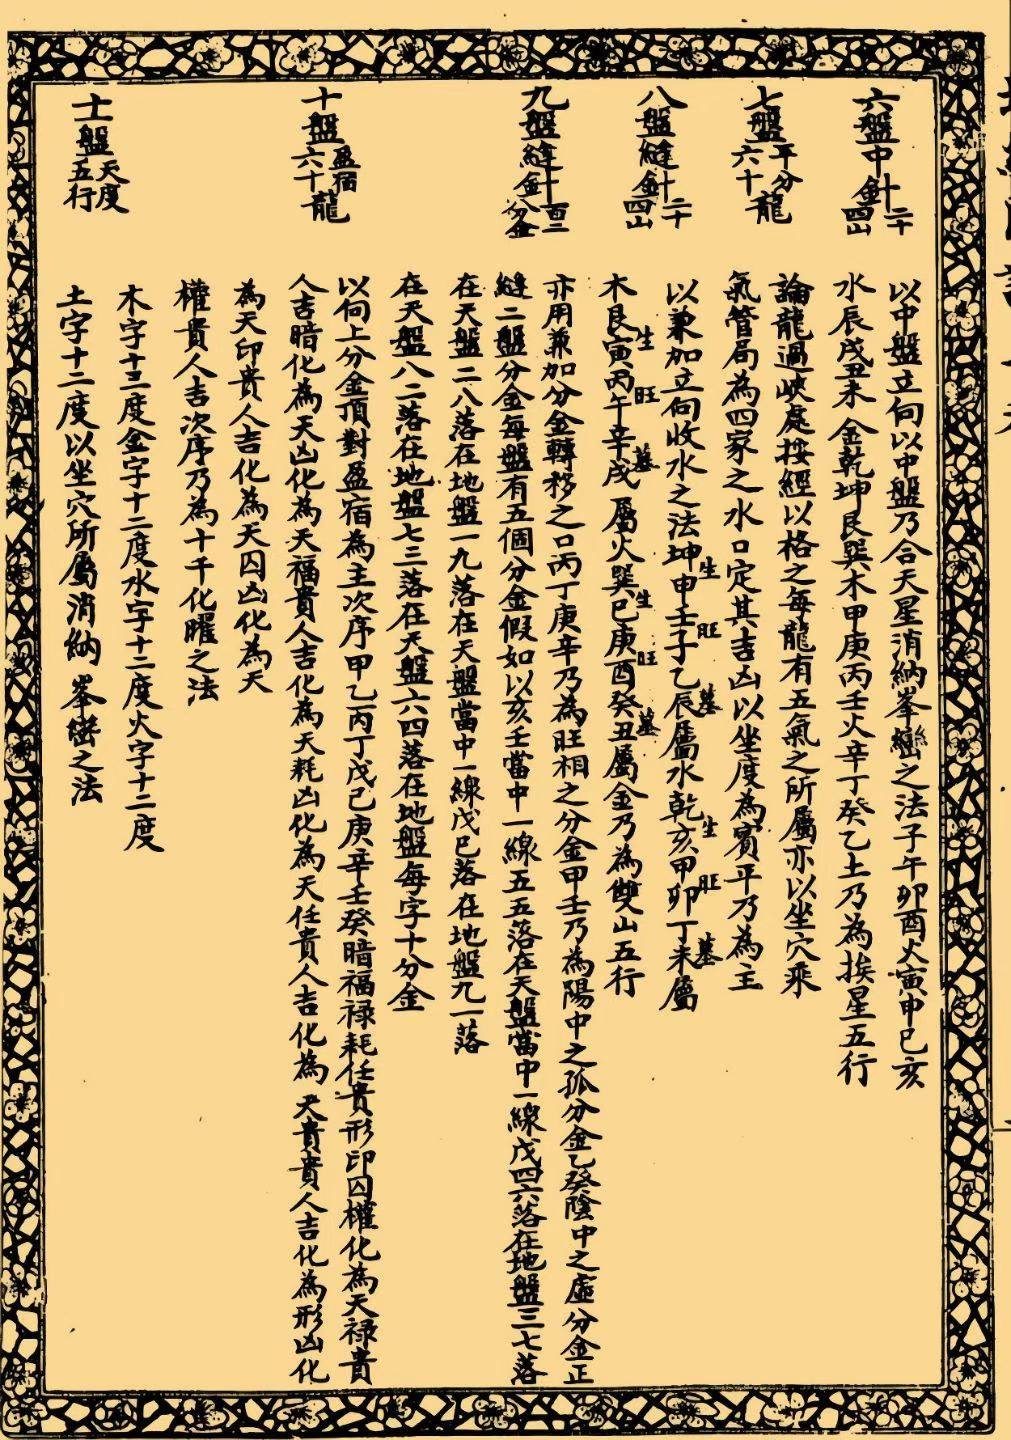 六盤中針二十四山
以中盤立向以中盤乃合天星消納峯巒之法子午卯酉火寅申巳亥
水辰戌丑未金乾坤艮巽木甲庚丙壬火辛丁癸乙土乃為挨星五行
七盤平分六十龍
論龍過峽處按經以格之每龍有五氣之所屬亦以坐穴乘
氣管局為四家之水口定其吉凶以坐度為賓平乃為主
八盤縫針二十四山
以兼加立向收水之法坤申壬子乙辰屬水乾亥甲卯丁未屬
生旺墓生旺墓
木艮寅丙午辛戌屬火巽巳庚酉癸丑屬金乃為雙山五行
生旺墓生旺墓
九盤縫針百二十分金
亦用兼加分金轉移之口丙丁庚辛乃為旺相之分金甲壬乃為陽中之孤分金乙癸陰中之虛分金正
縫二盤分金每盤有五個分金假如以亥壬當中一線五五落在天盤當中一線戊四六落在地盤三七落
在天盤二八落在地盤一九落在天盤當中一線戊巳落在地盤九一落
在天盤八二落在地盤七三落在天盤六四落在地盤每字十分金
十盤盈宿六十龍
以向上分金頂對盈宿為主次序甲乙丙丁戊巳庚辛壬癸暗福祿耗任貴形印囚權化為天祿貴
人吉暗化為天凶化為天福貴人吉化為天耗凶化為天任貴人吉化為天貴貴人吉化為形凶化
為天印貴人吉化為天囚凶化為天
權貴人吉次序乃為十干化曜之法
十一盤天度五行
木字十三度金字十二度水字十二度火字十二度
土字十二度以坐穴所屬消納峯巒之法